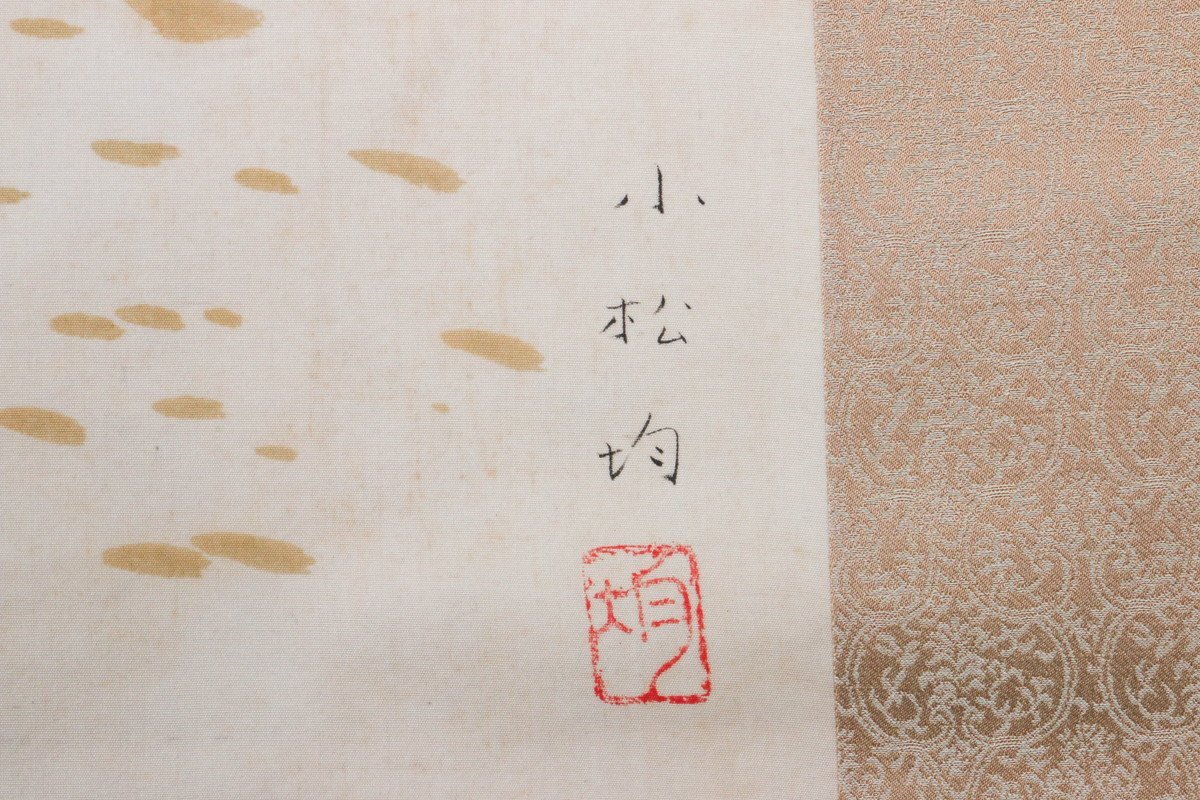 小松均
均